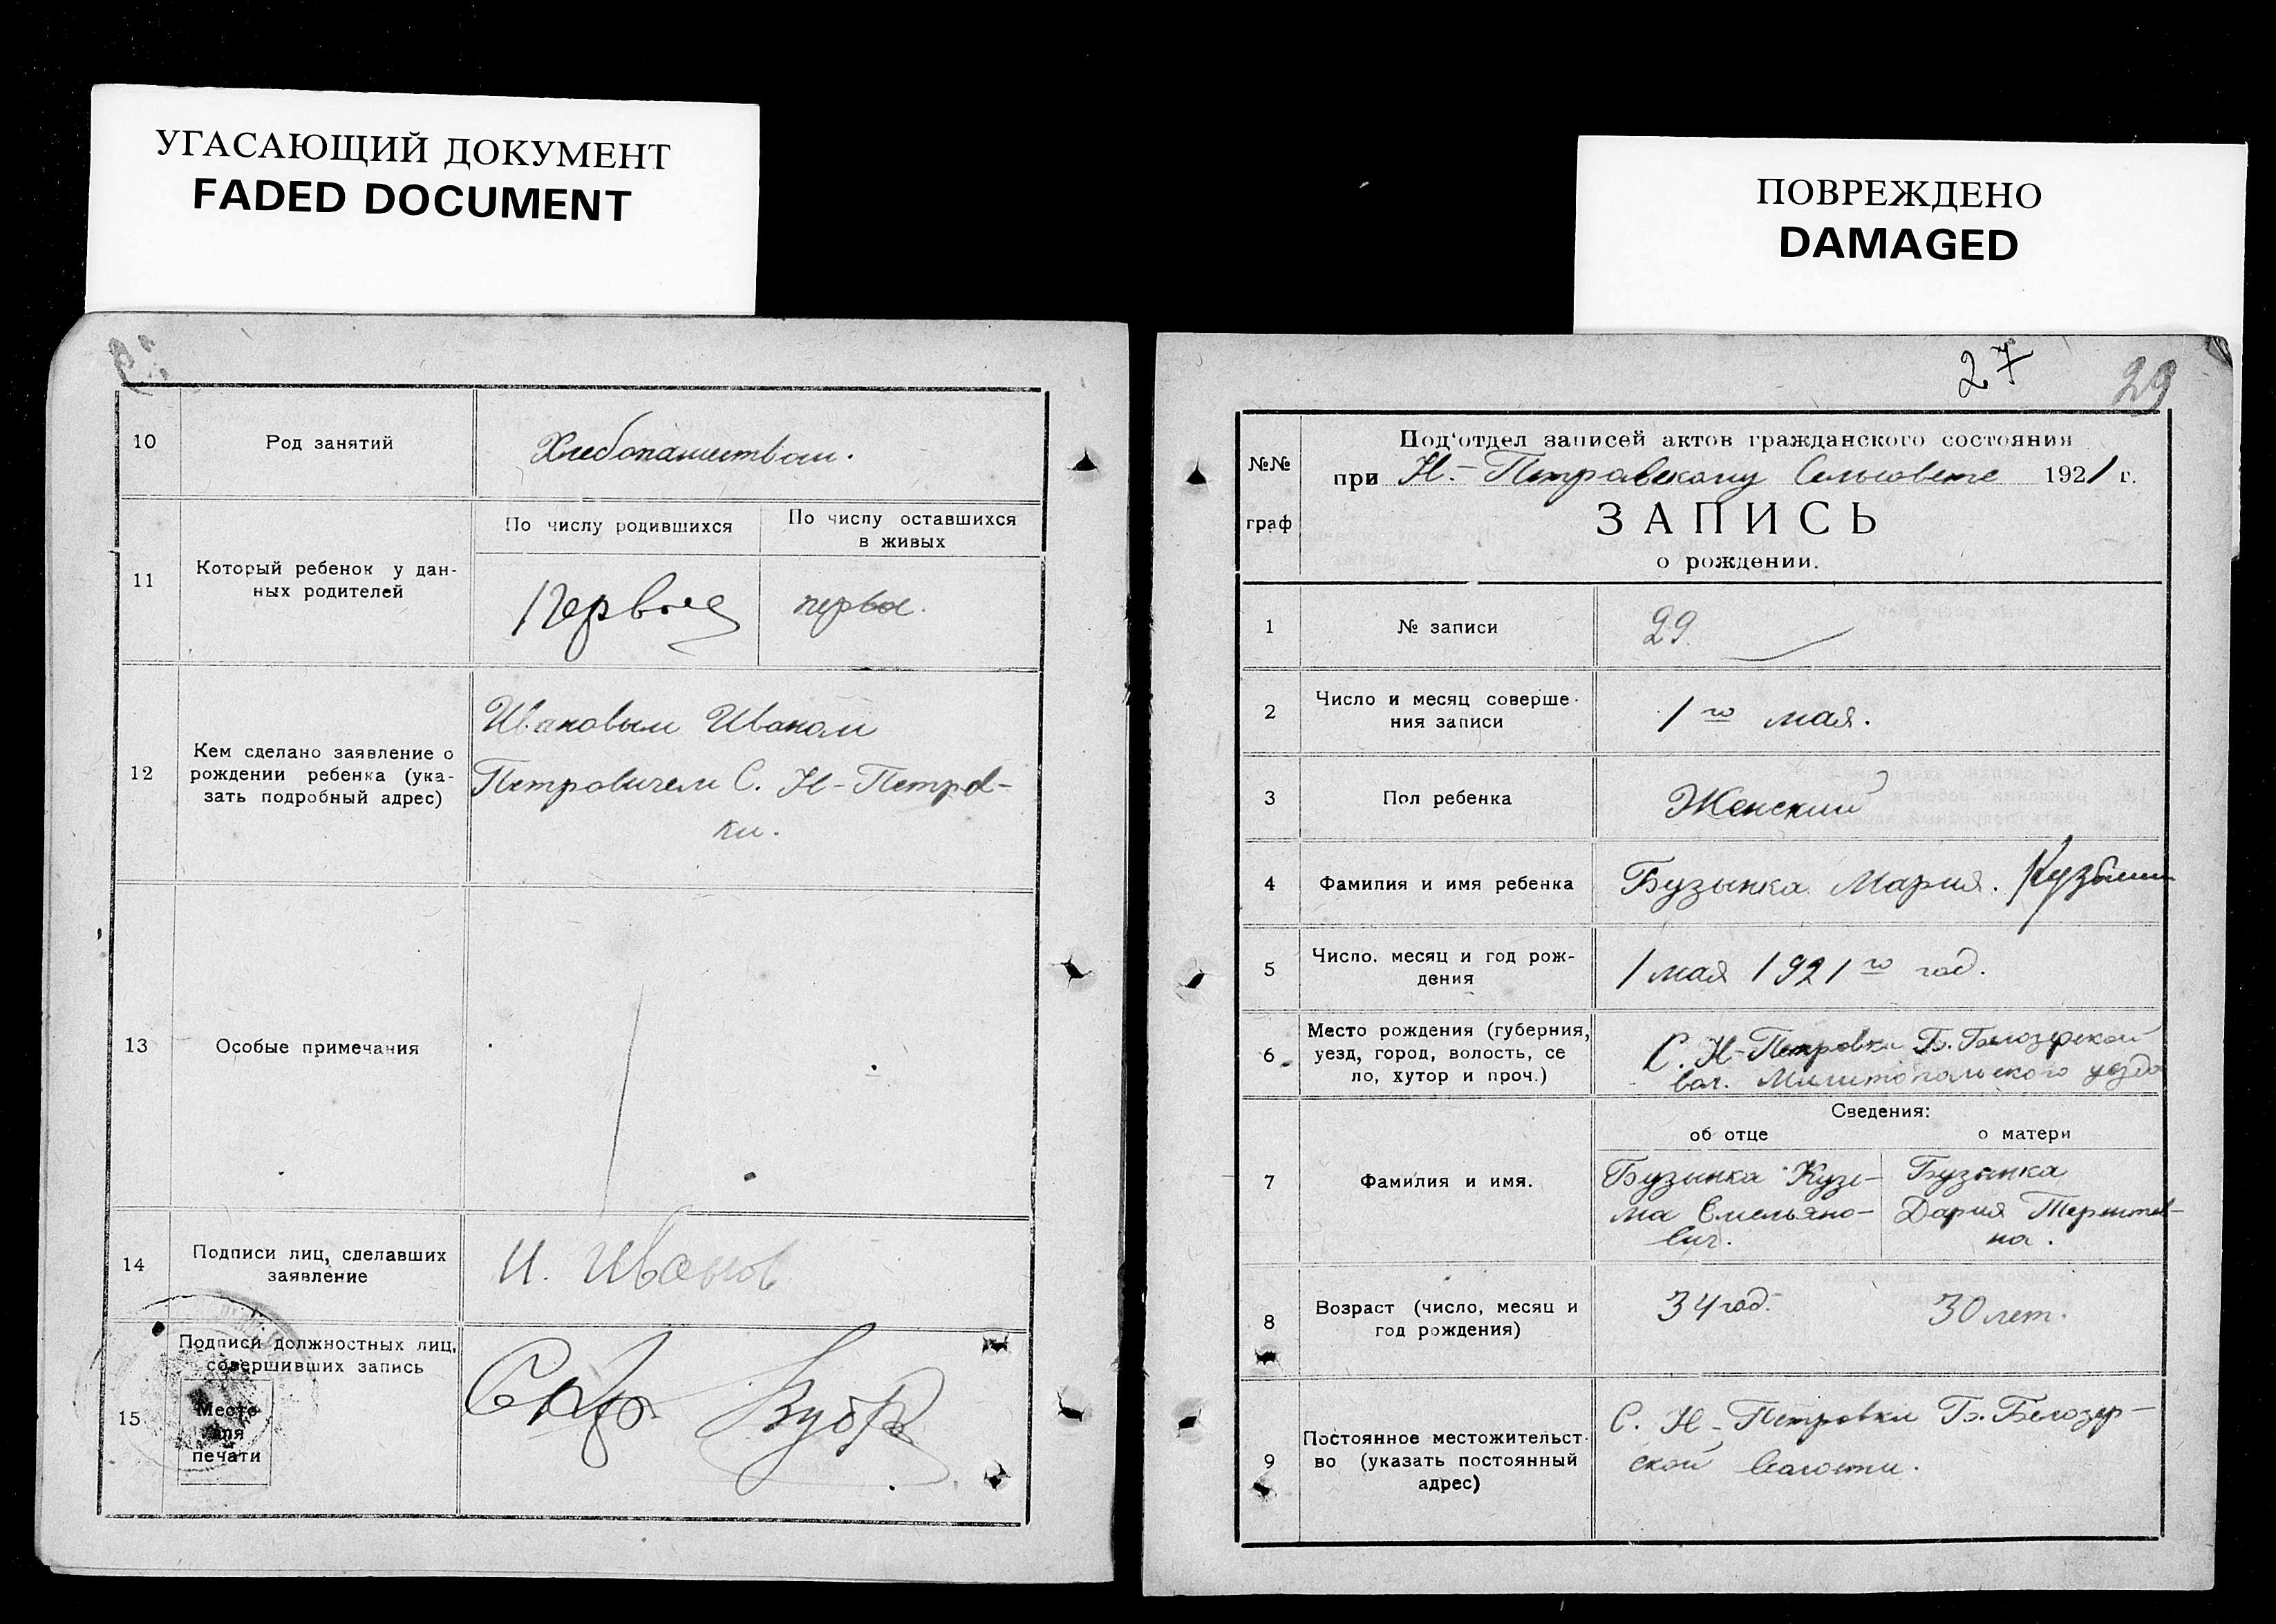 УГАСАЮЩИЙ ДОКУМЕНТ
FADED DOCUMENT
10
Род занятий
Хлебопашеством.
11
Который ребенок у дан-
ных родителей
По числу родившихся
По числу оставшихся
в живых
первые
первое.
12
Кем сделано заявление о
рождении ребенка (ука-
зать подробный адрес)
Ивановым Иваном
Петровичем С. Н-Петров-
ки.
13
Особые примечания
14
Подписи лиц, сделавших
заявление
И. Иванов
15
Подписи должностных лиц,
совершивших запись
Место
для
печати
ПОВРЕЖДЕНО
DAMAGED
27
29
№№
граф
Под'отдел записей актов гражданского состояния
при Н.-Петравскому Сельсовете 1921 г.
ЗАПИСЬ
о рождении.
1
№ записи
29
2
Число и месяц соверше-
ния записи
1го мая.
3
Пол ребенка
Женский
4
Фамилия и имя ребенка
Бузынка Мария.
5
Число. месяц и год рож-
дения
1 мая 1921го год.
6
Место рождения (губерния,
уезд, город, волость, се
ло, хутор и проч.)
С. Н-Петровки Б. Белозерской
вол. Мелитопольского уезда
Сведения:
об отце
о матери
7
Фамилия и имя.
Бузынка Кузь-
ма Емельяно-
вич.
Бузынка
Дария
на.
8
Возраст (число, месяц и
год рождения)
34 год.
30 лет.
9
Постоянное местожительст-
во (указать постоянный
адрес)
С. Н-Петровки Б. Белозер-
ской Волости.